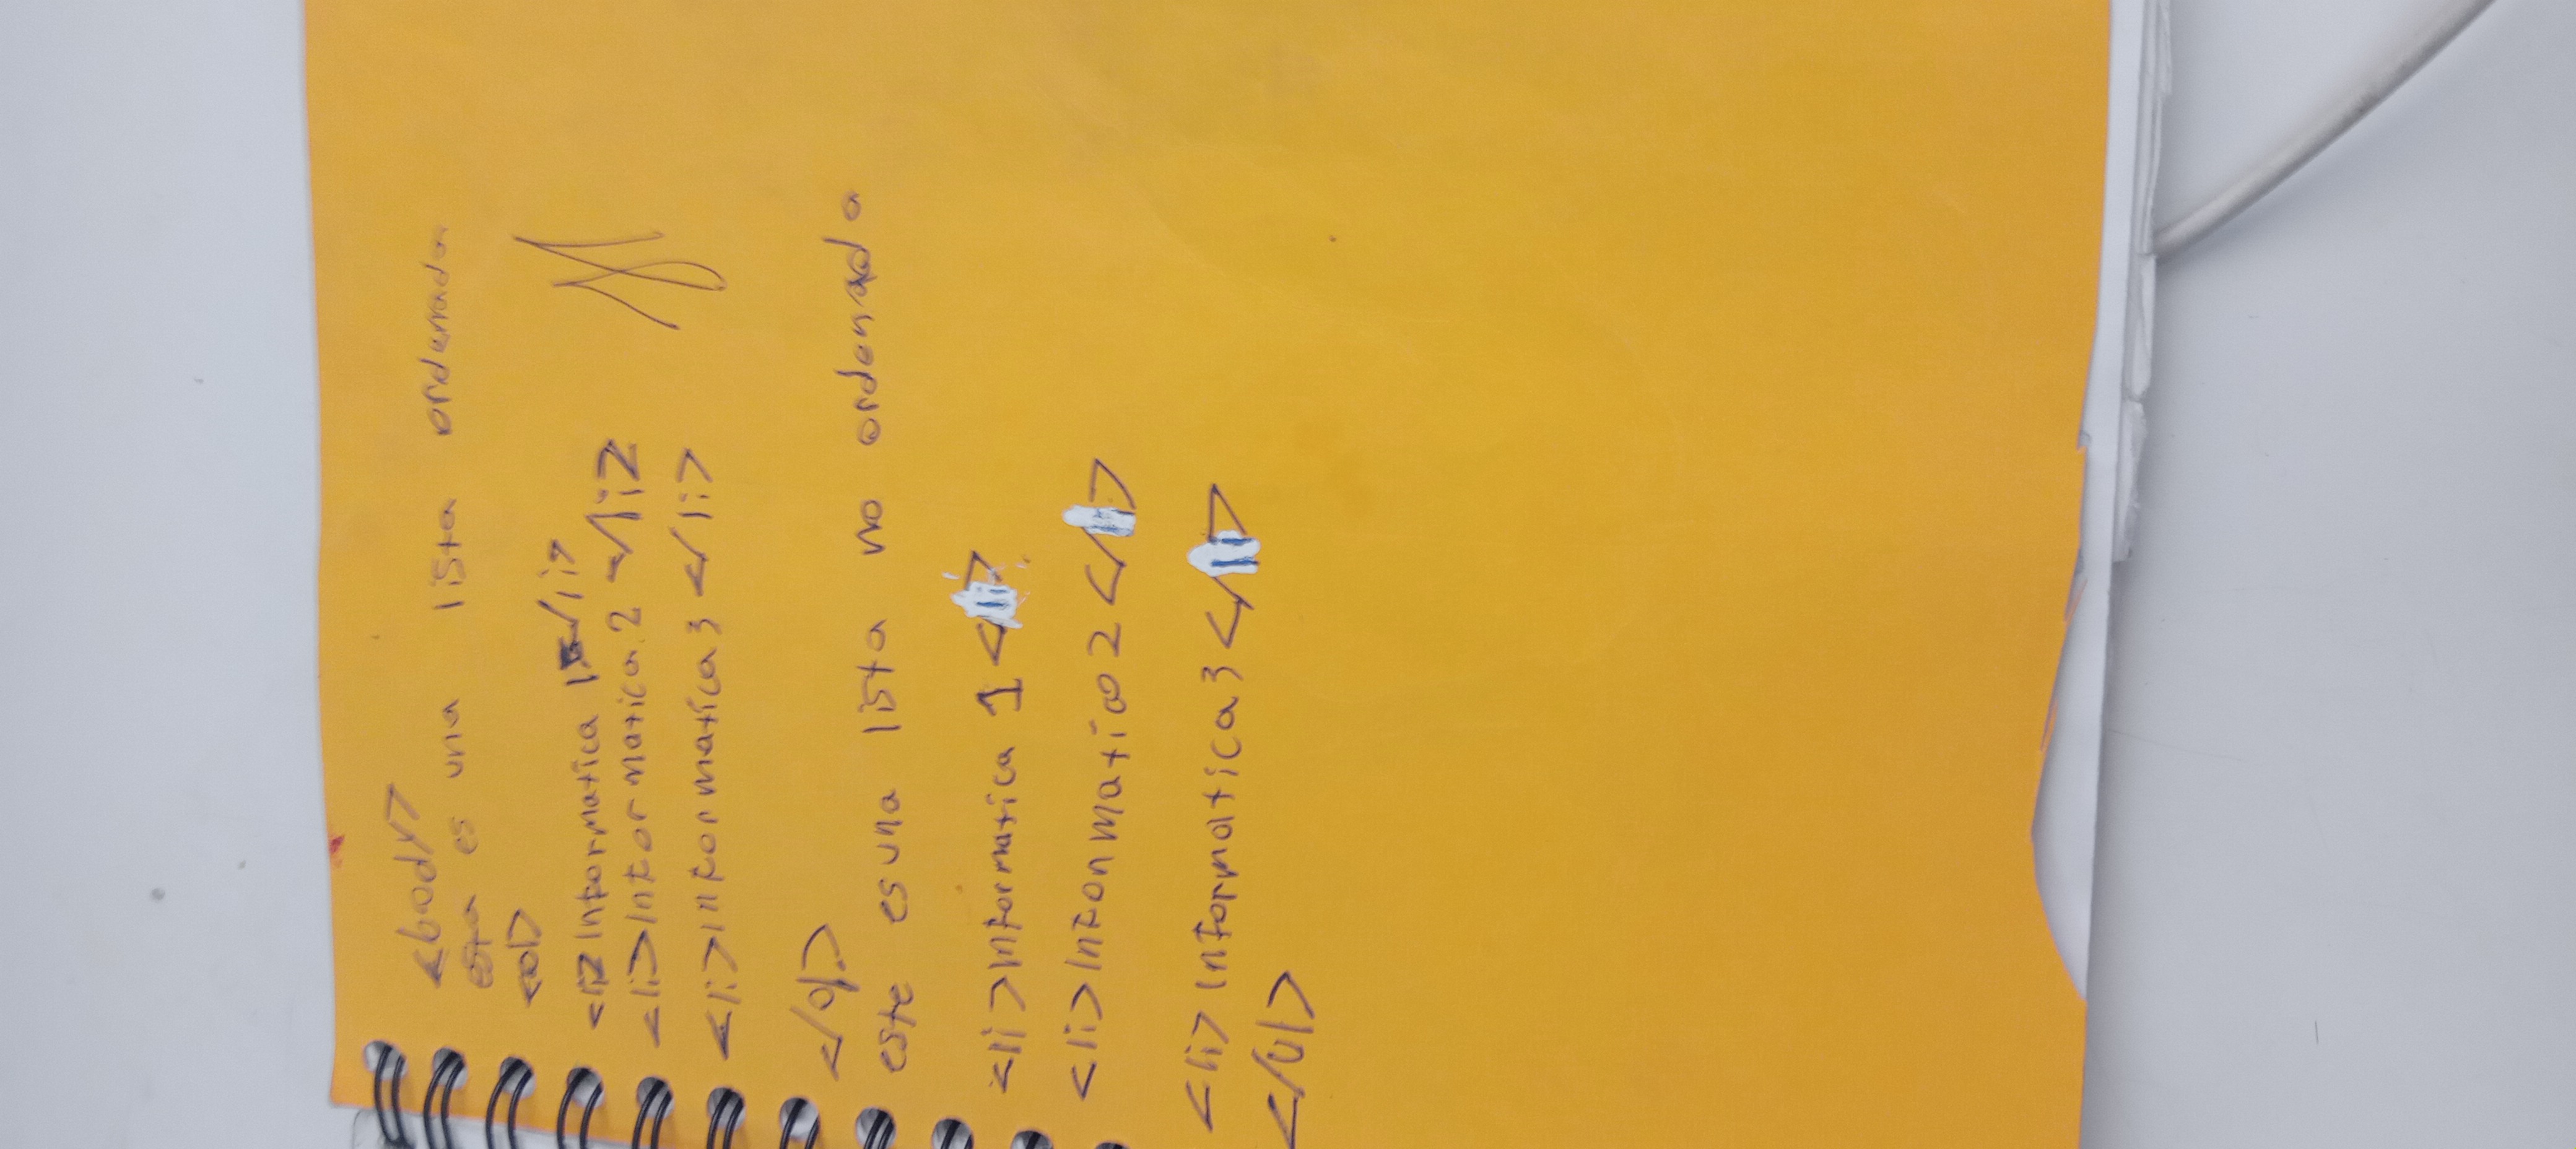 <body>
esta es una lista ordenada
<ol>
<li>Informatica 1</li>
<li>Informatica 2 </li>
<li>Informatica 3 </li>
</ol>
este es una lista no ordenada
<li>Informatica 1 </li>
<li>Informatica 2 </li>
<li>Informatica 3 </li>
</ul>